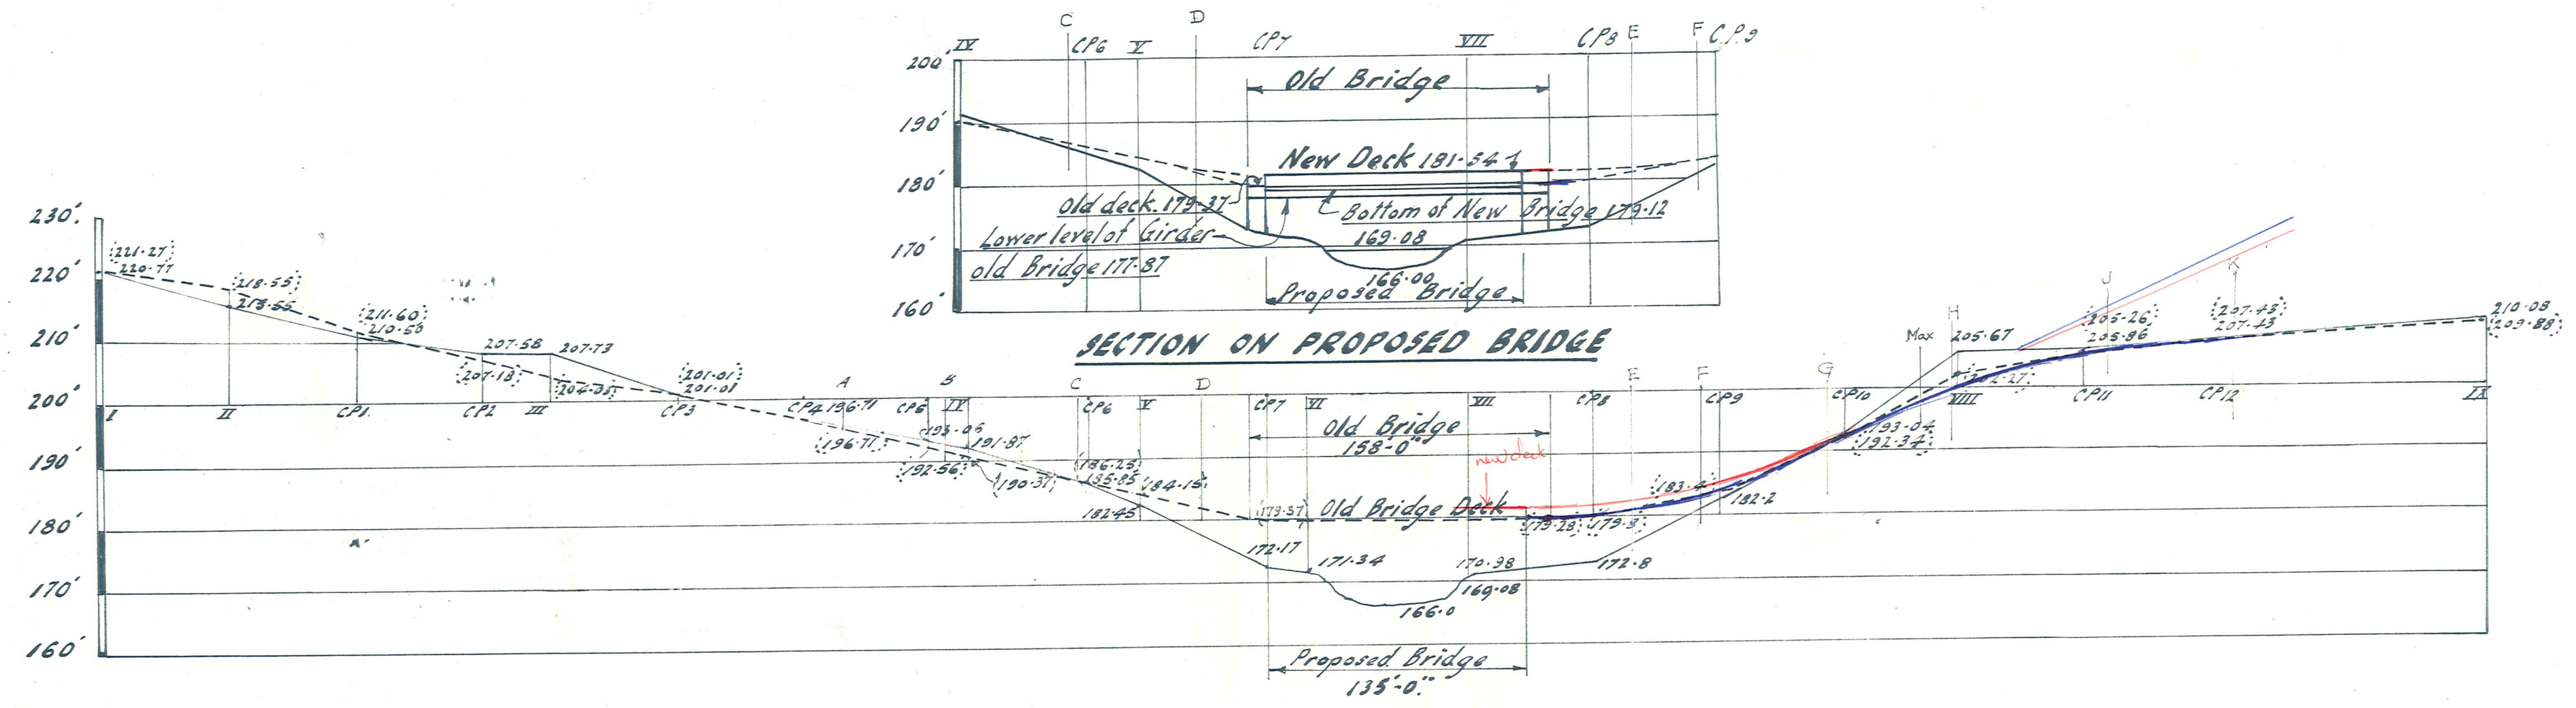 C D
IV CP6 V CP7 VII CP8 E F C.P.9
200'
Old Bridge
190'
New Deck 181·54
180'
Old deck. 179·37
Bottom of New Bridge 179·12
Lower level of Girder
169·08
170'
old Bridge 177·87
166·00
Proposed Bridge
160'
SECTION ON PROPOSED BRIDGE
230'
220'
210'
200'
190'
180'
170'
160'
(221·27)
220·77
(218·55)
(211·60)
210·50
207·58 207·73
(207·18) (204·35)
(201·01)
201·01
A B C D E F G Max H J K
I II CP1 CP2 III CP3 CP4 196·71 CP5 IV CP6 V CP7 VI VII CP8 CP9 CP10 VIII CP11 CP12 IX
(196·71)
193·06
(192·56)
191·87
(190·37)
(186·25)
185·85
(184·15)
182·45
Old Bridge
158'-0"
new deck
(179·37) Old Bridge Deck
(179·28) (179·3)
(183·4)
182·2
172·17
171·34
170·98
169·08
166·0
172·8
193·04
(192·34)
205·67
(205·26)
205·86
(207·43)
207·43
210·08
(209·88)
Proposed Bridge
135'-0"